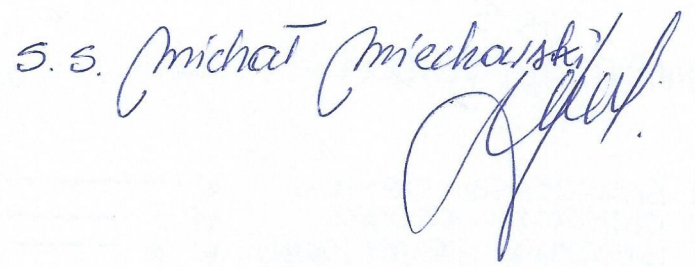 s. s. Michał Miechowski